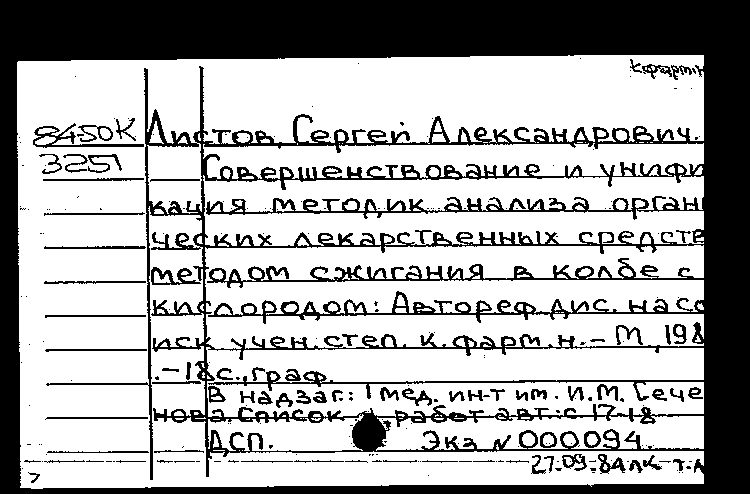 к.фарм.н
8450К Листов, Сергей Александрович.
3251 Совершенствование и унифи
кация методик анализа органи
ческих лекарственных средств
методом сжигания в колбе с
кислородом: Автореф. дис. на со
иск учен. степ. к. фарм. н. – М, 198
. – 18 с., граф.
В надзаг.: 1 мед. ин-т им. И.М. Сече
нова. Список работ авт.: с 17-18
ДСП. Экз № 000094.
27.09.84